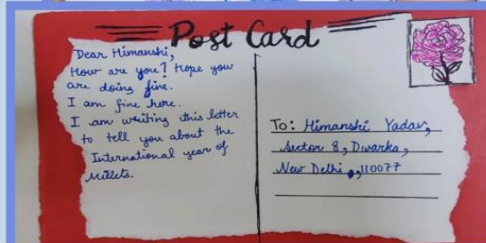 Post Card
Dear Himanshi,
How are you? Hope you
are doing fine.
I am fine here.
I am writing this letter
to tell you about the
International year of
Millets.
To: Himanshi Yadav,
Sector 8, Dwarka,
New Delhi, 110077